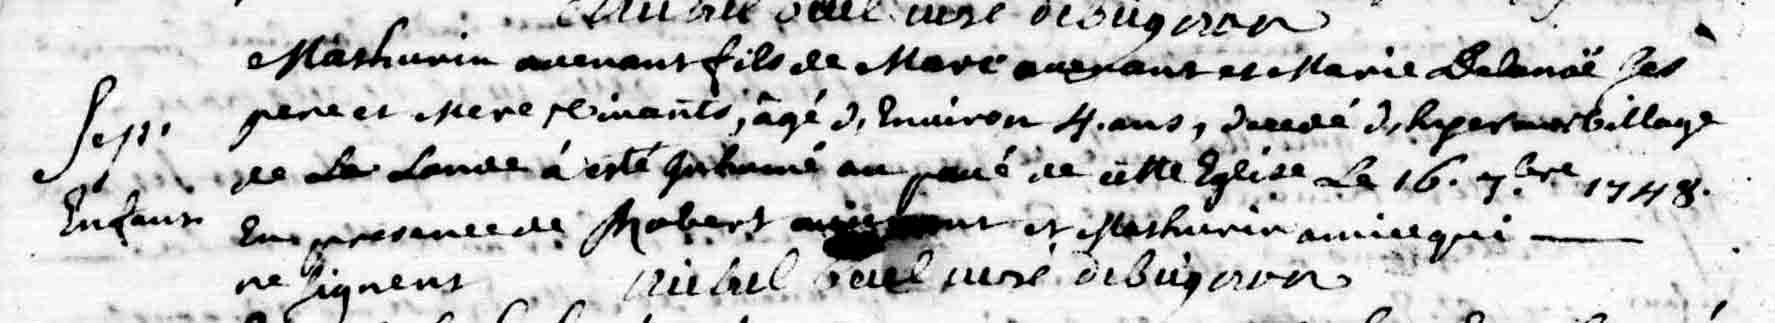 curé de bugnon
Mathurin avenant fils de Marc avenant et Marie Delanoë ses
Sep.
pere et Mere vivants, âgé d'Environ 4. ans, decedé d'hyer au village
de La Lande á esté Inhumé au pavé de cette Eglise Le 16. 7.bre 1748.
Enfant
En presence de Robert et Mathurin amice qui
ne signent curé de bugnon